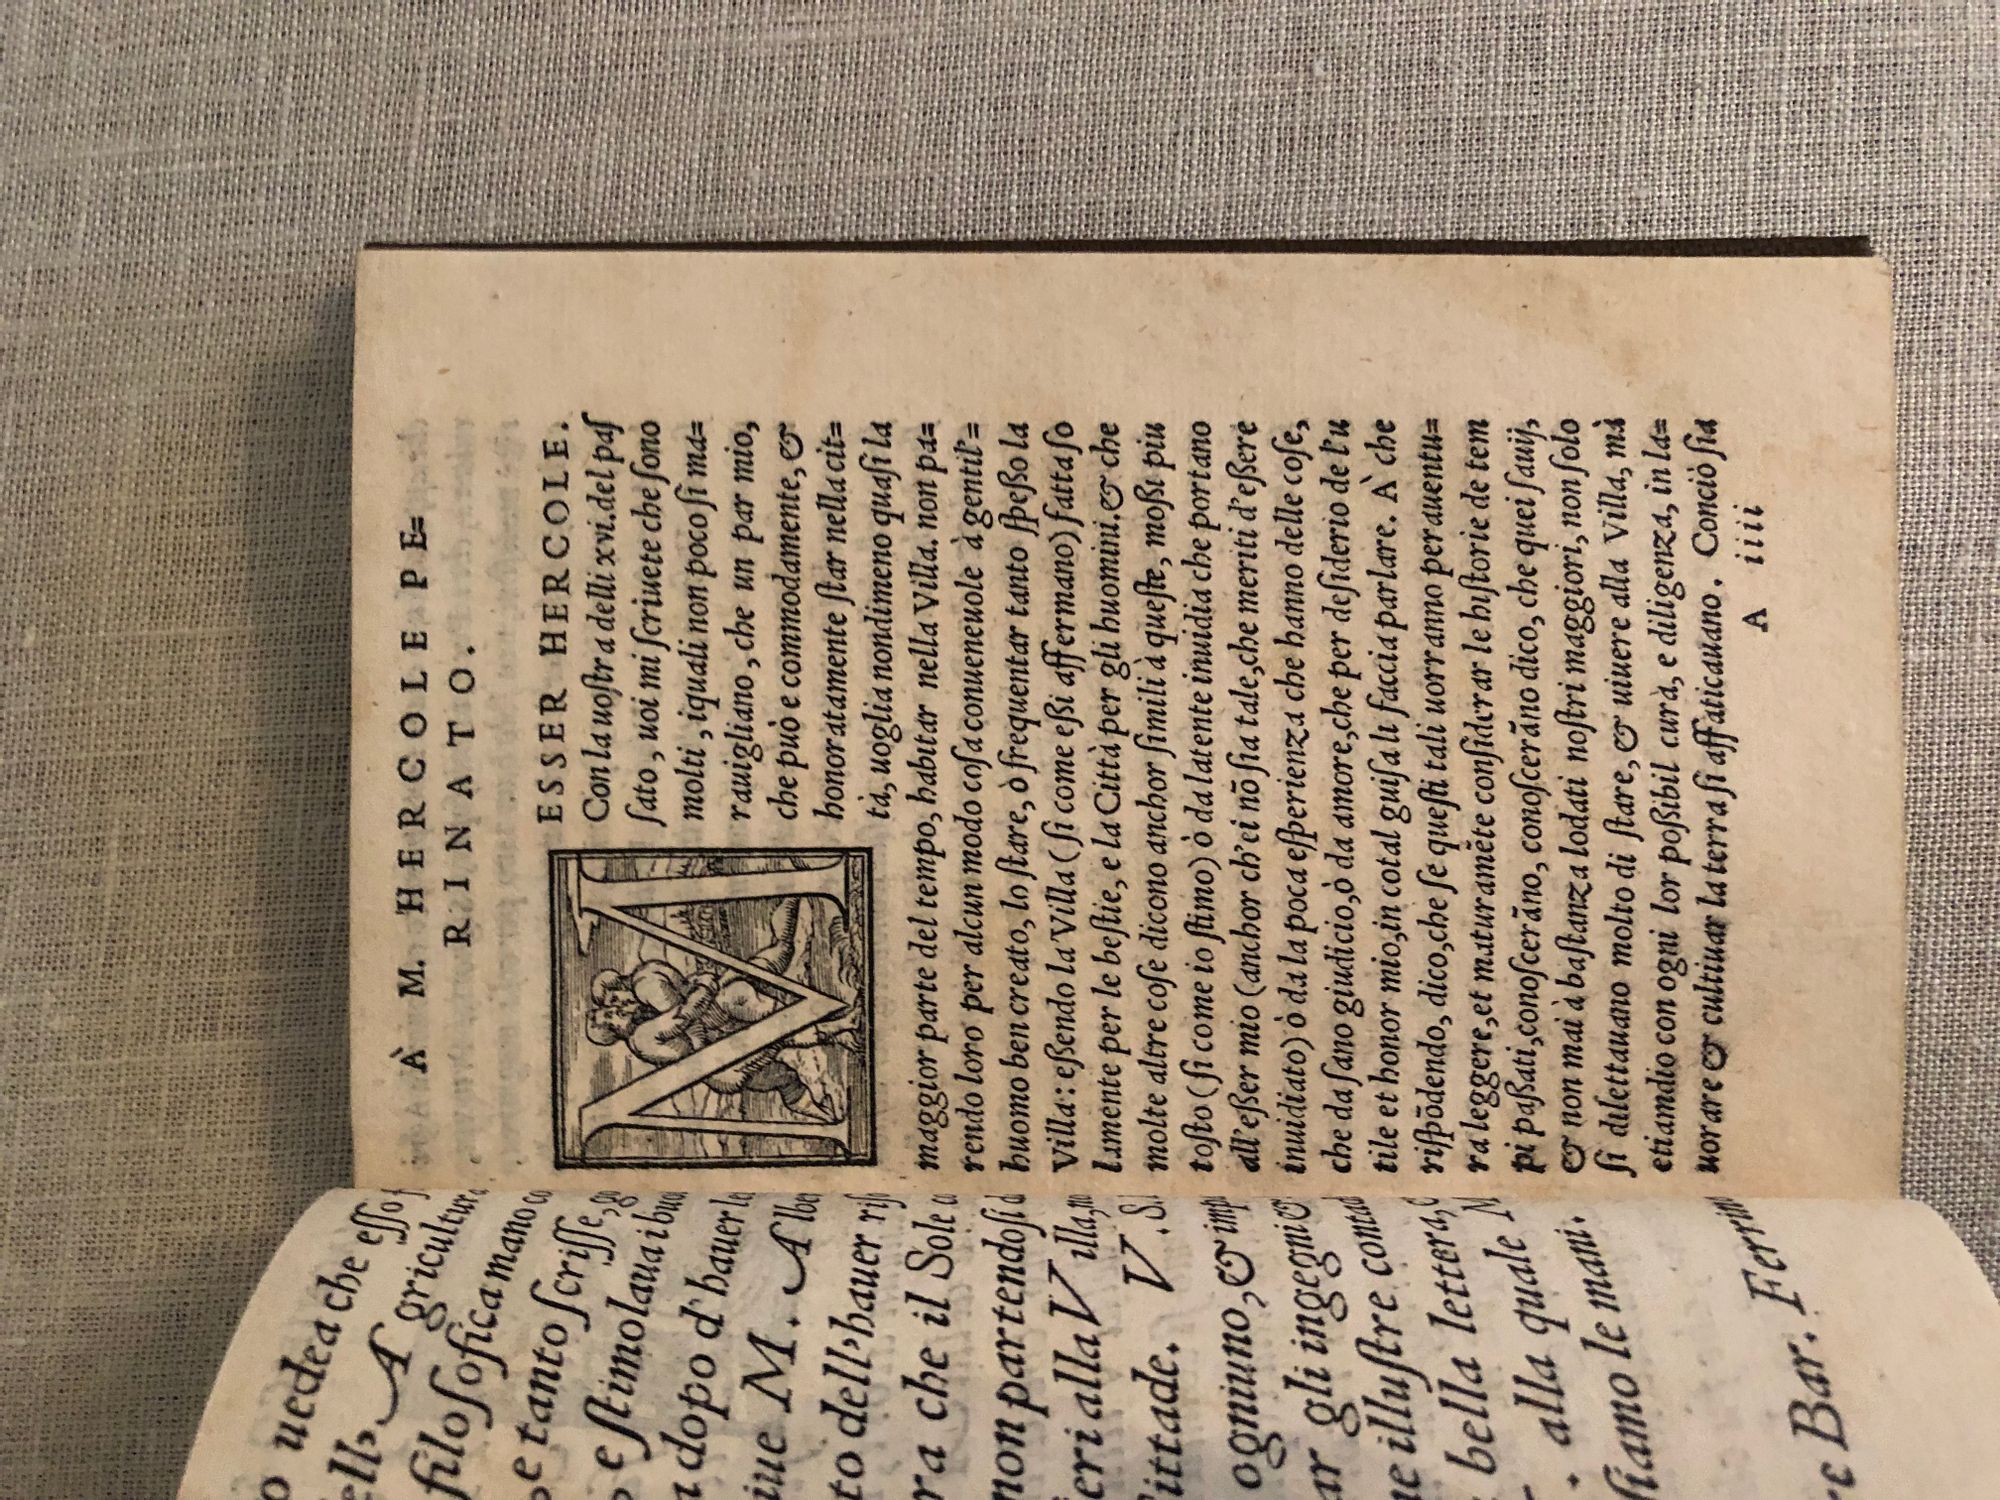 o uedea che esso s
ell' Agricultura
filosofica mano co
e tanto scrisse, gu
e stimolaua i buo
dopo d'hauer le
iue M. Albe
to dell'hauer ris
ra che il Sole a
non partendosi d
eri alla Villa, m
ittade. V. S.
ogniuno, & imp
ar gli ingegni &
ne illustre contad
bella lettera, c
alla quale M
siamo le mani.
re Bar. Ferrin
À M. HERCOLE PE=
RINATO.
MESSER HERCOLE.
Con la uostra delli xvi. del pas
sato, uoi mi scriuete che sono
molti, iquali non poco si ma=
rauigliano, che un par mio,
che può e commodamente, &
honoratamente star nella cit=
tà, uoglia nondimeno quasi la
maggior parte del tempo, habitar nella Villa. non pa=
rendo loro per alcun modo cosa conueneuole à gentil'=
huomo ben creato, lo stare, ò frequentar tanto spesso la
Villa: essendo la Villa (si come essi affermano) fatta so
lamente per le bestie, e la Città per gli huomini. & che
molte altre cose dicono anchor simili à queste, mossi piu
tosto (si come io stimo) ò da latente inuidia che portano
all'esser mio (anchor ch'ei nõ sia tale, che meriti d'essere
inuidiato) ò da la poca esperienza che hanno delle cose,
che da sano giudicio, ò da amore, che per desiderio de l'u
tile et honor mio, in cotal guisa li faccia parlare. À che
rispõdendo, dico, che se questi tali uorranno per auentu=
ra leggere, et maturamẽte considerar le historie de tem
pi passati, conoscerãno, conoscerãno dico, che quei sauij,
& non mai à bastanza lodati nostri maggiori, non solo
si dilettauano molto di stare, & uiuere alla Villa, mà
etiamdio con ogni lor possibil curà, e diligenza, in la=
uorare & cultiuar la terra si affaticauano. Conciò sia
A iiii